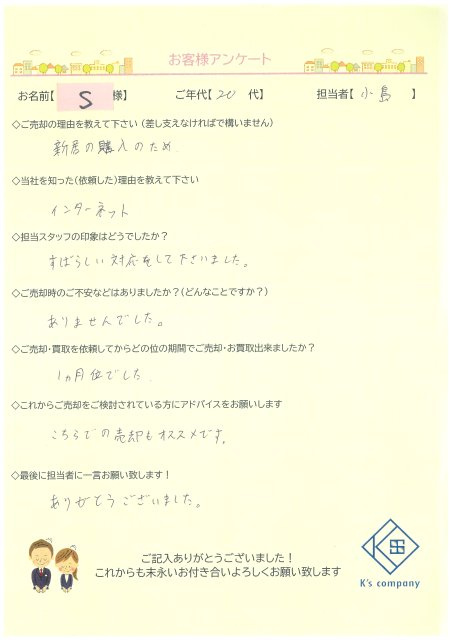 お客様アンケート
お名前【 S 様】 ご年代【 20 代】 担当者【 小島 】
◇ご売却の理由を教えて下さい（差し支えなければで構いません）
新居の購入のため
◇当社を知った（依頼した）理由を教えて下さい
インターネット
◇担当スタッフの印象はどうでしたか？
すばらしい対応をして下さいました。
◇ご売却時のご不安などはありましたか？（どんなことですか？）
ありませんでした。
◇ご売却・買取を依頼してからどの位の期間でご売却・お買取出来ましたか？
1ヵ月位でした
◇これからご売却をご検討されている方にアドバイスをお願いします
こちらでの売却もオススメです。
◇最後に担当者に一言お願い致します！
ありがとうございました。
ご記入ありがとうございました！
これからも末永いお付き合いよろしくお願い致します
K's company